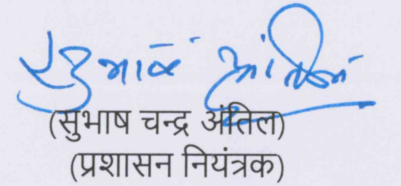 सुभाष अंतिल
(सुभाष चन्द्र अंतिल)
(प्रशासन नियंत्रक)